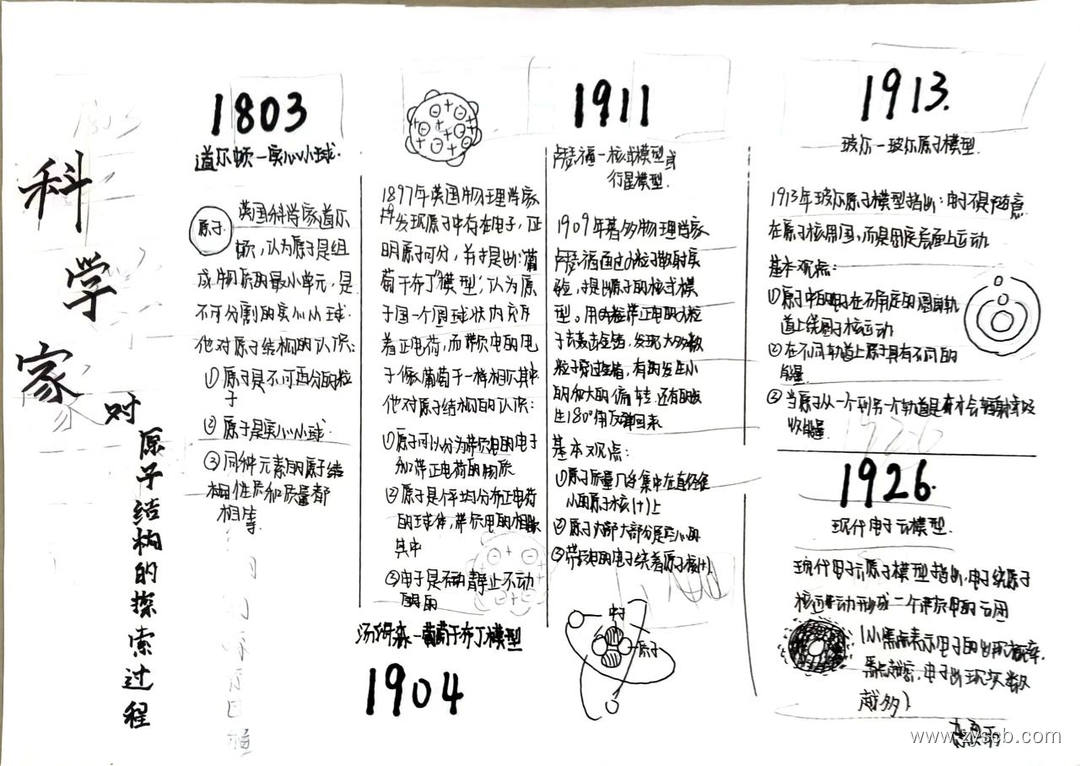 科学家
对原子结构的探索过程
1803
道尔顿-实心小球.
原子
英国科学家道尔
顿,认为原子是组
成物质的最小单元,是
不可分割的实心小球.
他对原子结构的认识:
①原子是不可再分的粒
子
②原子是实心小球.
③同种元素的原子结
构性质和质量都
相等.
1897年英国物理学家
发现原子中存在电子,证
明原子可分,并于提出:葡
萄干布丁"模型;认为原
子国一个圆球状内充存
着正电荷,而带负电的电
子像葡萄干一样相仄其中
他对原子结构的认识:
①原子可以分为带负电的电子
和带正电荷的物质
②原子是个平均分布正电荷
的球体,带负电的相
其中
③电子是静止不动
汤姆森-葡萄干布丁模型
1904
1911
卢瑟福-核式模型或
行星模型.
1909年著名物理学家
卢瑟福通过α粒子散射实
验,提出原子的核式模
型。用带正电的α粒
子去轰击金箔,发现大多数
粒子穿过金箔,有的发生小
的和大的偏转,还有的发
生180°角反弹回来
基本观点:
①原子质量几乎集中在直径很
小的原子核(+)上
②原子内部大部分是空的
③带负电的电子绕着原子核(+)
原子
1913.
玻尔-玻尔原子模型.
1913年玻尔原子模型指出:电子不是随意
在原子核周围,而是固定层面上运动
基本观点:
①原子中的电子在不同的圆周轨
道上绕原子核运动
②在不同轨道上原子具有不同的
能量.
②当原子从一个到另一个轨道是有才会辐射或吸
收能量
1926.
现代电子云模型.
现代电子云原子模型指出,电子绕原子
核运动形成一个带负电的云团
(小黑点表示电子的出现概率.
黑点越密,电子出现次数
越多)
www.zyscb.com